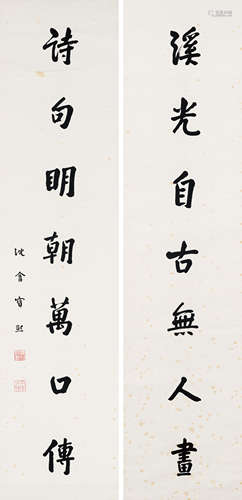 溪光自古無人畫
詩句明朝萬口傳
沈曾
熙